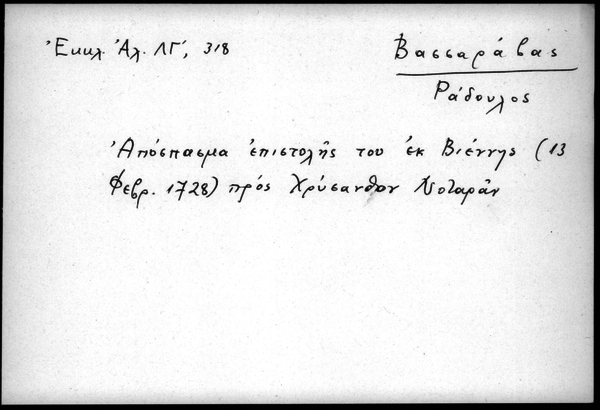 Ἐκκλ. Ἀλ. ΛΓ', 318
Βασσαράβας
Ράδουλος
Ἀπόσπασμα ἐπιστολῆς του ἐκ Βιέννης (13
Φεβρ. 1728) πρός Χρύσανθον Νοταρᾶν